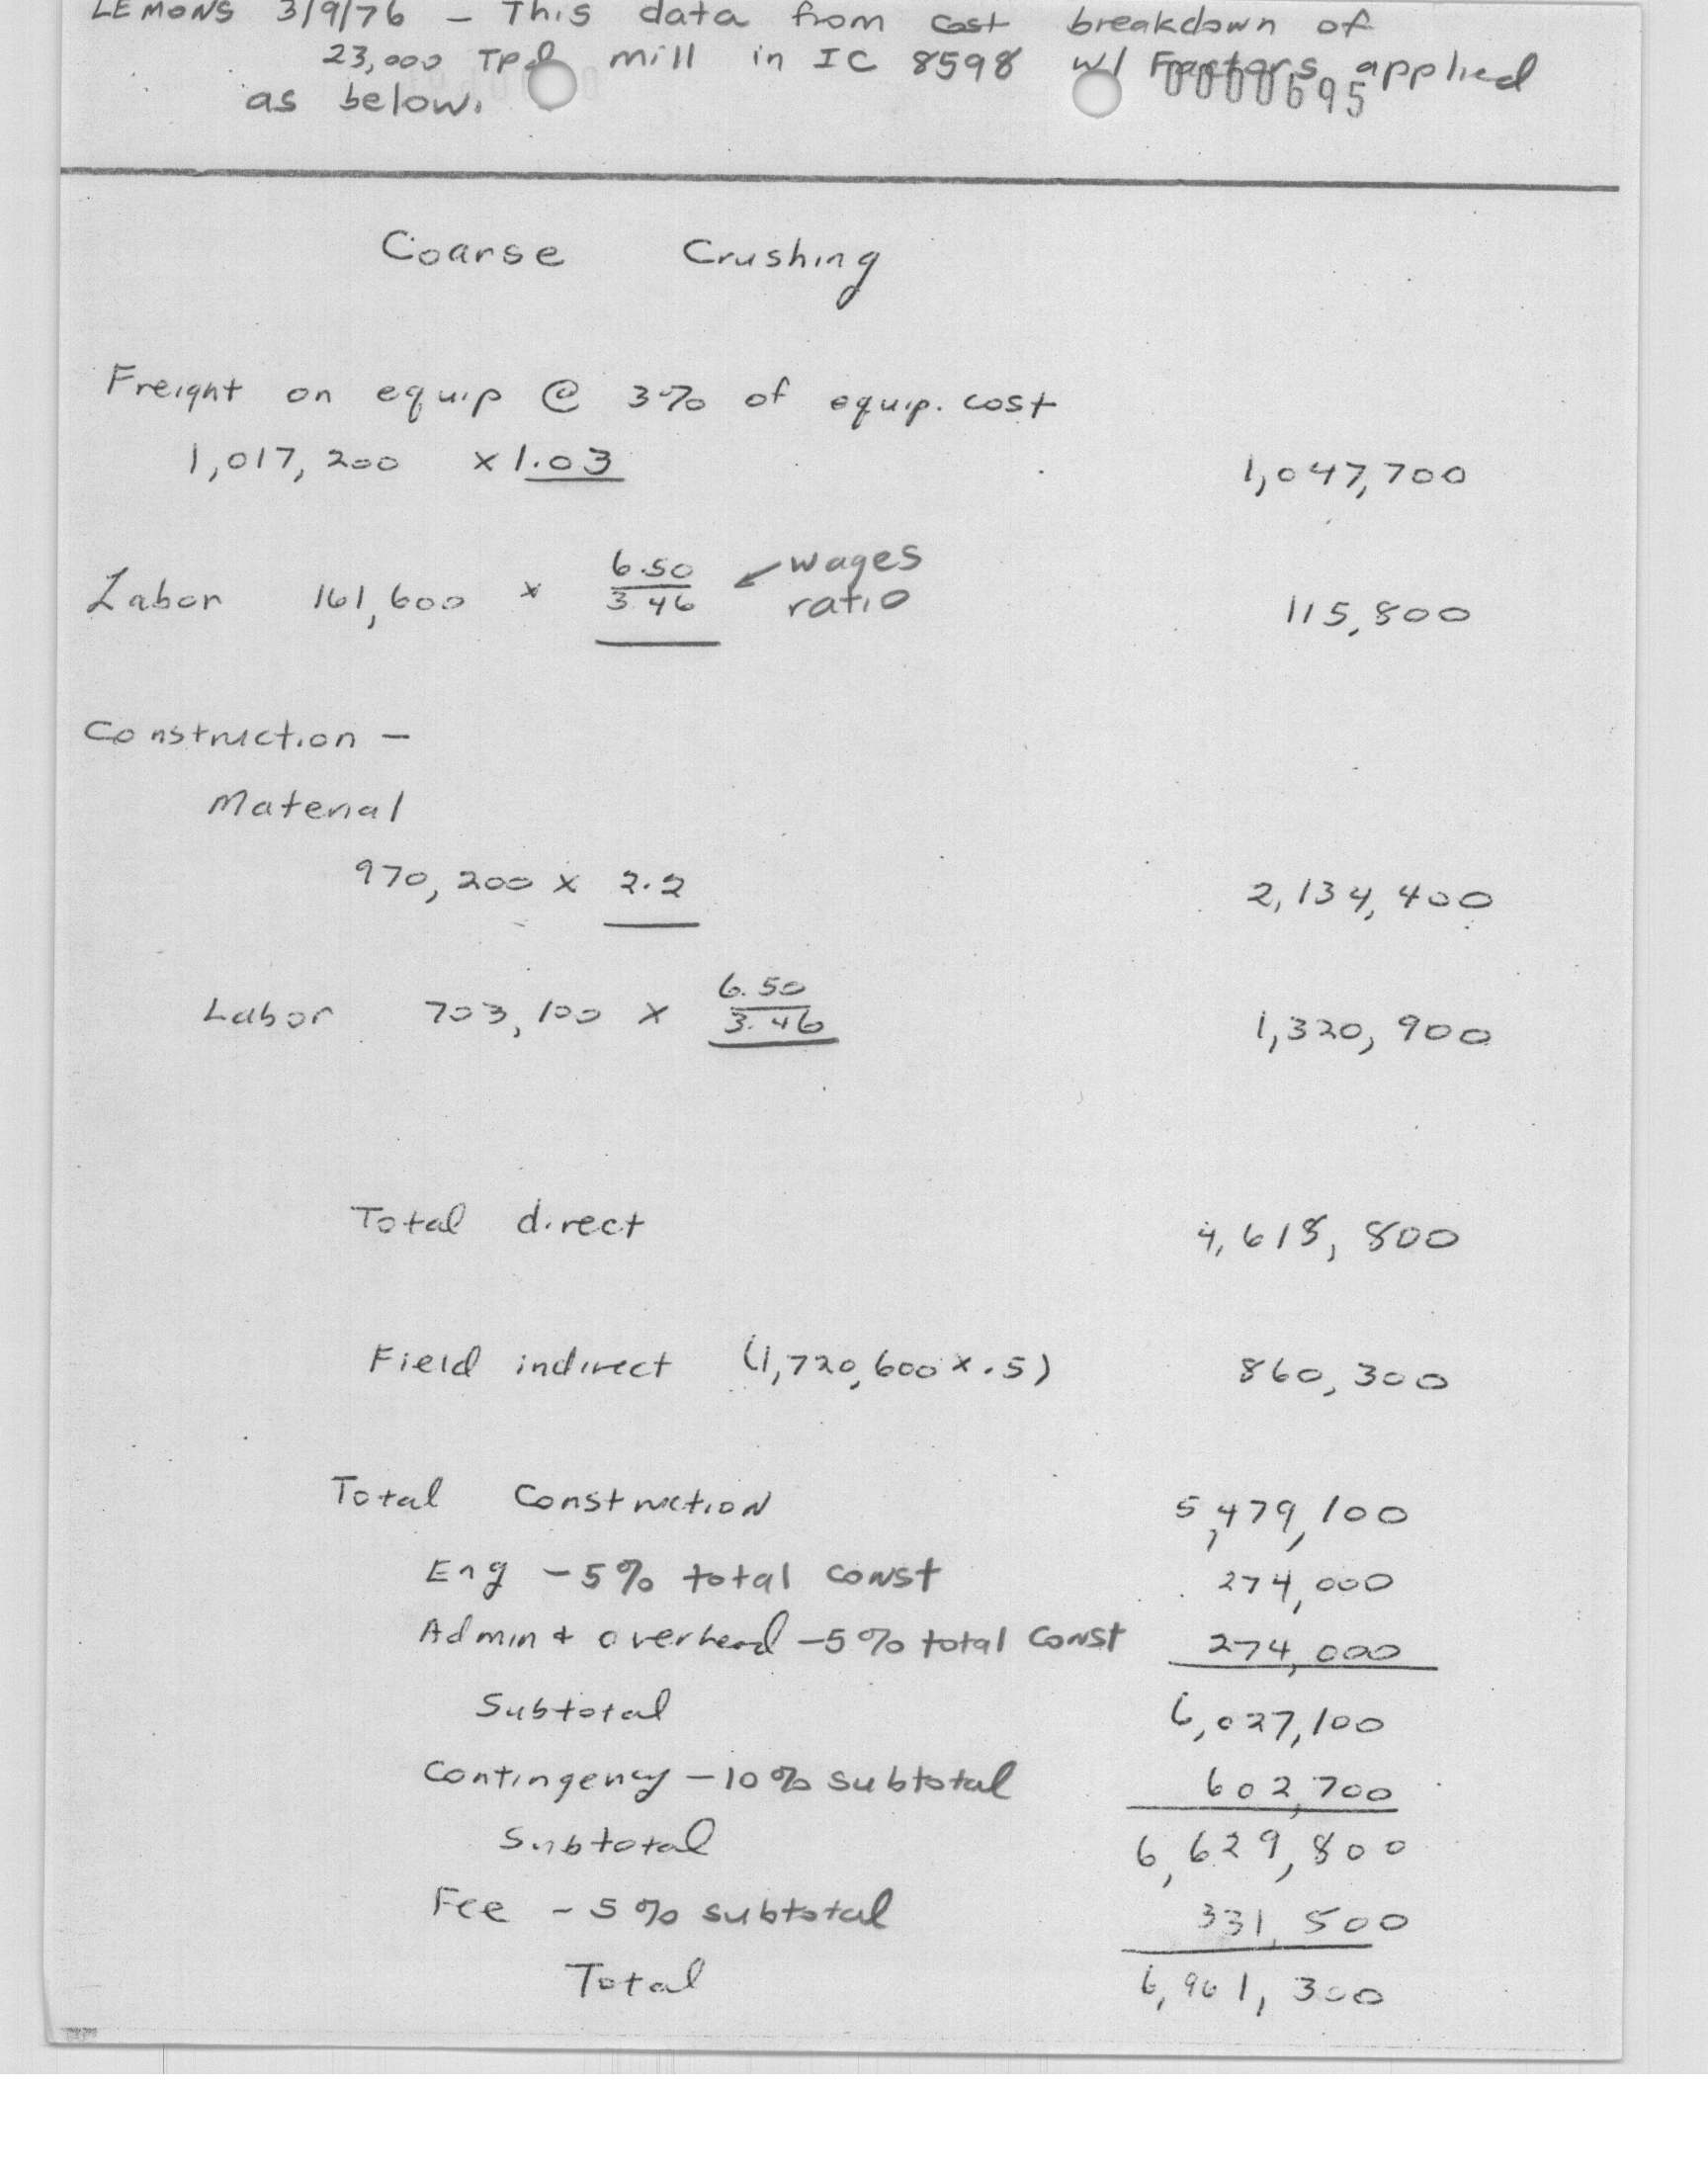 LEMONS 3/9/76 – This data from cost breakdown of
23,000 Tpd mill in IC 8598 w/ Factors applied
0000695
as below.
Coarse Crushing
Freight on equip @ 3% of equip. cost
1,017,200 x 1.03 1,047,700
Labor 161,600 x 6.50/3.46 ← wages ratio 115,800
Construction –
Material
970,200 x 2.2 2,134,400
Labor 703,100 x 6.50/3.46 1,320,900
Total direct 4,618,800
Field indirect (1,720,600 x .5) 860,300
Total Construction 5,479,100
Eng – 5% total const 274,000
Admin + overhead – 5% total const 274,000
Subtotal 6,027,100
Contingency – 10% subtotal 602,700
Subtotal 6,629,800
Fee – 5% subtotal 331,500
Total 6,961,300